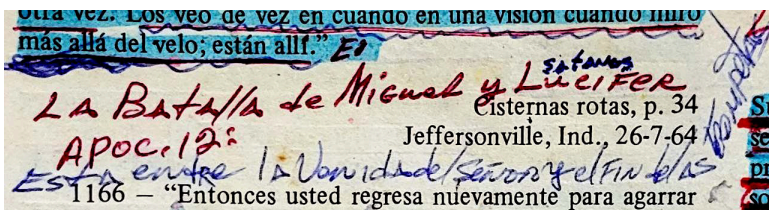 otra vez. Los veo de vez en cuando en una visión cuando miro
más allá del velo; están allí.” El
satanas
LA BATAlla de Miguel y LuciFER
Cisternas rotas, p. 34
APOC. 12:
Jeffersonville, Ind., 26-7-64
Esta entre la Venida del Señor y el Fin de las
1166 – “Entonces usted regresa nuevamente para agarrar